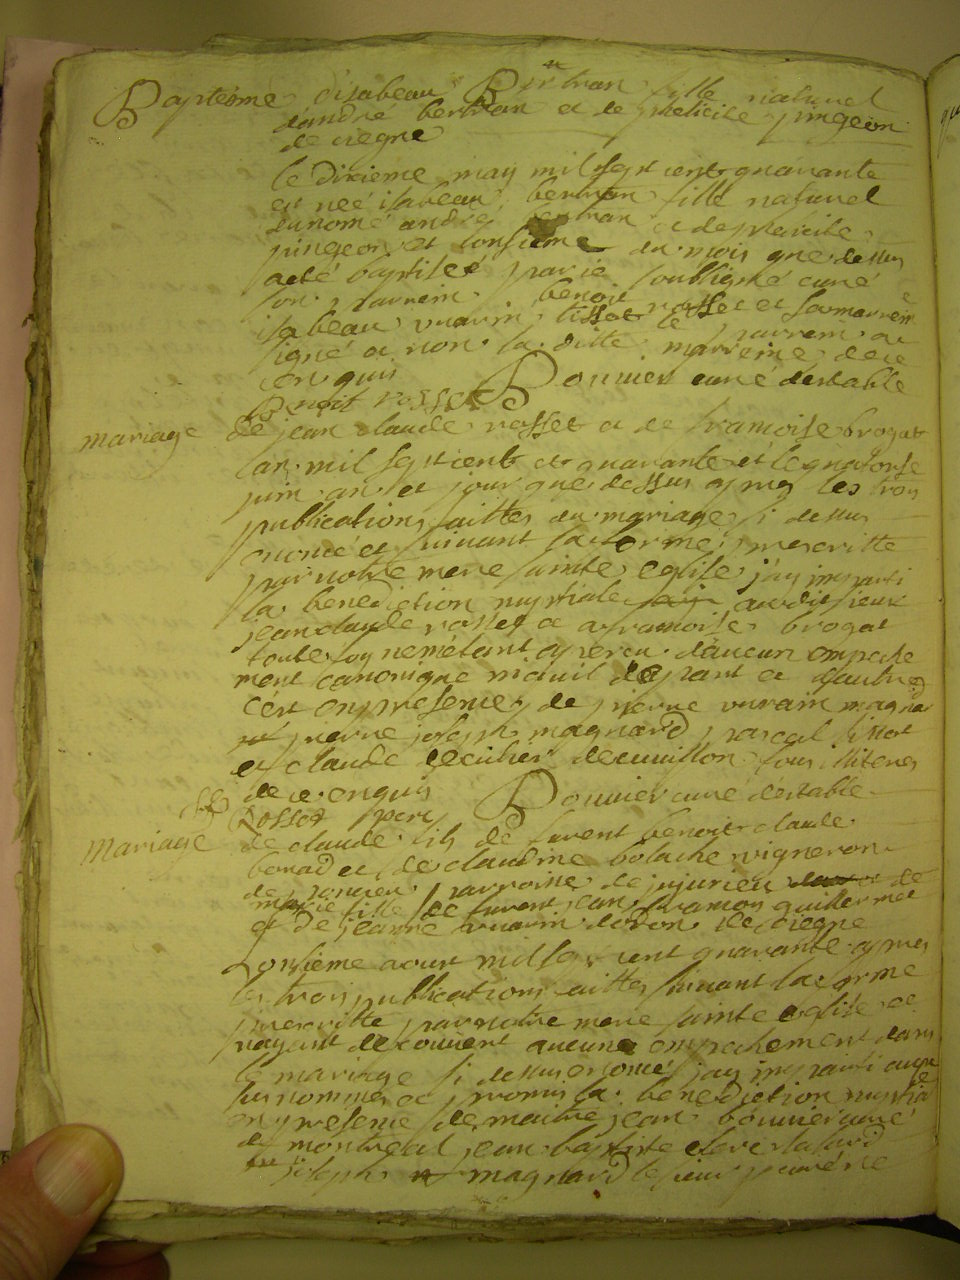 Bapteome disabeau Bertran fille naturel
dandré bertran et de phelicite pingeon
de ciegne
le dixieme may mil sept cent quarante
est neé isabeau bertran fille naturel
du nomé andre bertran et de phelicite
pingeon et lonsieme du mois que dessus
a eté baptiseé par ie soubsigné curé
son parrein benoit rosset et sa marreine
isabeau vuarin tissot le parrein a
signé et non la ditte marreine de ce
enquis Bouvier curé destable
Benoit rosset
mariage de jean claude rosset et de francoise brogat
lan mil sept cent et quarante et le quatorse
juin an et jour que dessus apres les trois
publications faittes du mariage si dessus
enoncé et suivant la forme prescritte
par notre mere sainte eglise j'ay imparti
la benediction nuptiale audit sieur
jean claude rosset et a francoise brogat
toute foy ne métant apercu daucun empeche
ment canonique ni civil de part et dautre
cést en presence de pierre vuarin magnard
pierre joseph magnard pascal tissot
et claude de cuillon tous illiteres
de ce enquis Bouvier curé destable
Rosset pere
Mariage de claude fils de furent benoit claude
bonad et de claudine bolache vigneron
de poncieu parroisse de jujurieu et de
marie fille de furent jean francois guillermet
et de jeanne vuarin dodon de ciegne
Lonsieme aoust mil sept cent quarante apres
les trois publications faittes suivant la forme
prescritte par notre mere sainte eglise et
nayant decouvert aucune empechement dans
le mariage si dessus enoncé j'ay imparti aux
susnommes et promis la benediction nuptiale
en presence de maitre jean bouvier curé
de montreal jean baptiste
joseph magnard le sieur